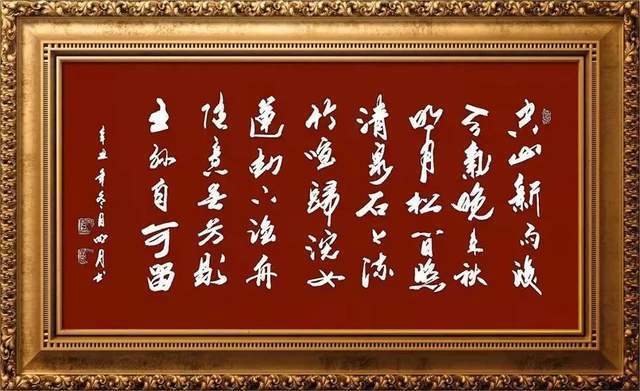 空山新雨後
天氣晚来秋
明月松间照
清泉石上流
竹喧歸浣女
蓮動下漁舟
随意春芳歇
王孫自可留
辛丑年冬月